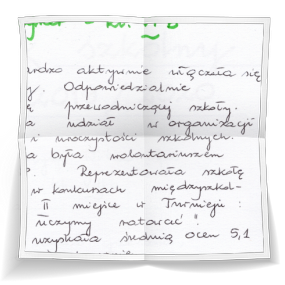 ardzo aktywnie włączała się
y. Odpowiedzialnie
ę przewodniczącej szkoły.
a udział w organizacji
i uroczystości szkolnych.
a była wolontariuszem
. Reprezentowała szkołę
w konkursach międzyszkol-
II miejsce w Turnieju :
uczymy ratować".
uzyskała średnią ocen 5,1